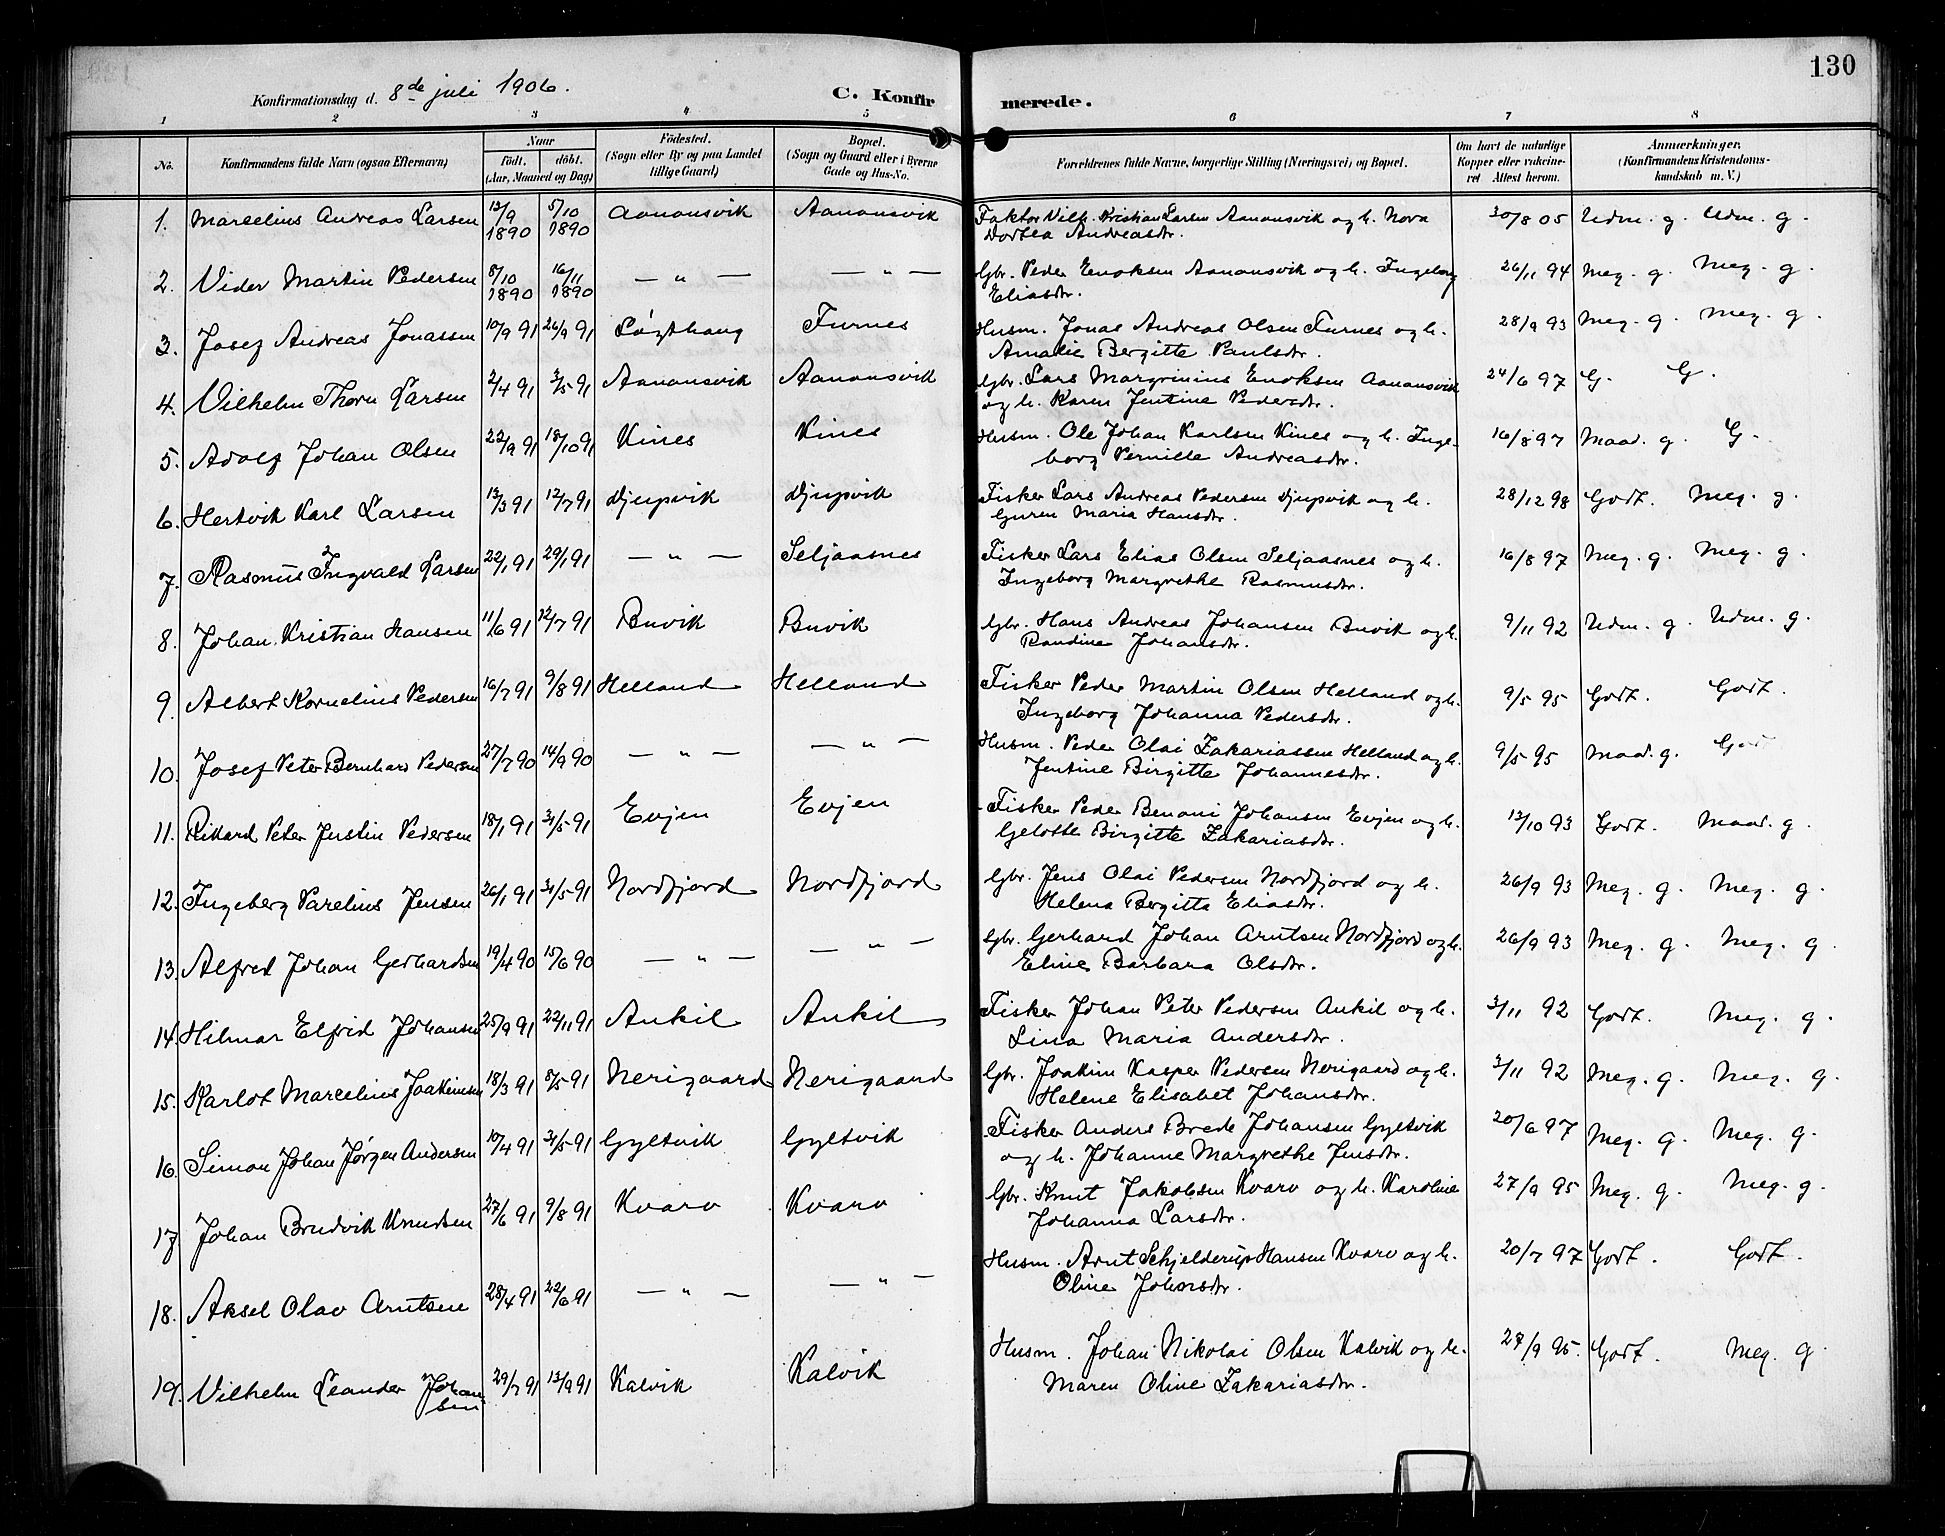 130
Konfirmationsdag d. 8de juli 1906. C. Konfirmerede.
1 2 3 4 5 6 7 8
No. Konfirmandens fulde Navn (ogsaa Efternavn) Naar födt. döbt. (Aar, Maaned og Dag) Födested. (Sogn eller By og paa Landet tillige Gaard) Bopæl. (Sogn og Gaard eller i Byerne Gade og Hus-No. Forældrenes fulde Navne, borgerlige Stilling (Næringsvei) og Bopæl. Om havt de naturlige Kopper eller vakcineret. Attest herom. Anmærkninger. (Konfirmandens Kristendomskundskab m. V.)
1. Marcelius Andreas Larsen 13/9 1890 5/10 1890 Aanonsvik Aanonsvik Faktor Vilh. Kristian Larsen Aanonsvik og h. Nora 30/8 05 Udm. g. Udm. g.
Dortea Andreasdtr.
2. Vider Martin Pedersen 8/10 1890 16/11 1890 — " — — " — Gbr. Peder Enoksen Aanonsvik og h. Ingeborg 26/11 94 Meg. g. Meg. g.
Eliasdtr.
3. Josef Andreas Jonassen 10/9 91 26/9 91 Løgthaug Furnes Husm. Jonas Andreas Olsen Furnes og h. 28/9 93 Meg. g. Meg. g.
Amalie Bergitte Paulsdtr.
4. Vilhelm Thorn Larsen 2/4 91 3/5 91 Aanonsvik Aanonsvik Gbr. Lars Margrinius Enoksen Aanonsvik 24/6 97 G. G.
og h. Karen Jentine Pedersdtr.
5. Adolf Johan Olsen 22/9 91 18/10 91 Kines Kines Husm. Ole Johan Karlsen Kines og h. Inge- 16/8 97 Maad. g. G.
borg Pernille Andreasdtr.
6. Hertvik Karl Larsen 13/3 91 12/7 91 Djupvik Djupvik Fisker Lars Andreas Pedersen Djupvik og h. 28/12 98 Godt. Meg. g.
Guren Maria Hansdtr.
7. Rasmus Ingvald Larsen 22/1 91 29/1 91 — " — Seljaasnes Fisker Lars Elias Olsen Seljaasnes og h. 16/8 97 Meg. g. Meg. g.
Ingeborg Margrethe Rasmusdtr.
8. Johan Kristian Hansen 11/6 91 12/7 91 Buvik Buvik Gbr. Hans Andreas Johansen Buvik og h. 9/11 92 Udm. g. Udm. g.
Randine Johansdtr.
9. Albert Kornelius Pedersen 16/7 91 9/8 91 Helland Helland Fisker Peder Martin Olsen Helland og h. 9/5 95 Godt. Godt.
Ingeborg Johanna Pedersdtr.
10. Josef Peter Bernhard Pedersen 27/7 90 14/9 90 — " — — " — Husm. Peder Olai Zakariassen Helland og h. 9/5 95 Maad. g. Godt
Jentine Birgitte Johannesdtr.
11. Rikard Peter Justin Pedersen 18/1 91 31/5 91 Evjen Evjen Fisker Peder Benoni Johansen Evjen og h. 13/10 93 Godt. Maad. g.
Gelotte Birgitte Zakariasdtr.
12. Ingeberg Parelius Jensen 26/1 91 31/5 91 Nordfjord Nordfjord Gbr. Jens Olai Pedersen Nordfjord og h. 26/9 93 Meg. g. Meg. g.
Helena Bergitta Eliasdtr.
13. Alfred Johan Gerhardsen 19/4 90 15/6 90 — " — — " — Gbr. Gerhard Johan Arntsen Nordfjord og h. 26/9 93 Meg. g. Meg. g.
Eline Barbara Olsdtr.
14. Hilmar Elfrid Johansen 25/9 91 22/11 91 Ankil Ankil Fisker Johan Peter Pedersen Ankil og h. 3/11 92 Godt. Meg. g.
Lina Maria Andersdtr.
15. Karlot Marcelius Joakimsen 18/3 91 8/5 91 Nerigaard Nerigaard Gbr. Joakim Kasper Pedersen Nerigaard og h. 3/11 92 Meg. g. Meg. g.
Helene Elisabet Johansdtr.
16. Simon Johan Jørgen Andersen 10/4 91 31/5 91 Gyltvik Gyltvik Fisker Anders Brede Johansen Gyltvik 20/6 97 Meg. g. Meg. g.
og h. Johanne Margrethe Jensdtr.
17. Johan Brudvik Knudsen 27/6 91 9/8 91 Kvarv Kvarv Gbr. Knut Jakobsen Kvarv og h. Karoline 27/9 95 Meg. g. Meg. g.
Johanna Larsdtr.
18. Aksel Olav Arntsen 28/4 91 22/6 91 — " — — " — Husm. Arnt Schjelderup Hansen Kvarv og h. 20/7 97 Godt. Godt.
Oline Johnsdtr.
19. Vilhelm Leander Johansen 29/7 91 13/9 91 Kalvik Kalvik Husm. Johan Nikolai Olsen Kalvik og h. 27/9 95. Godt. Meg. g.
Maren Oline Zakariasdtr.